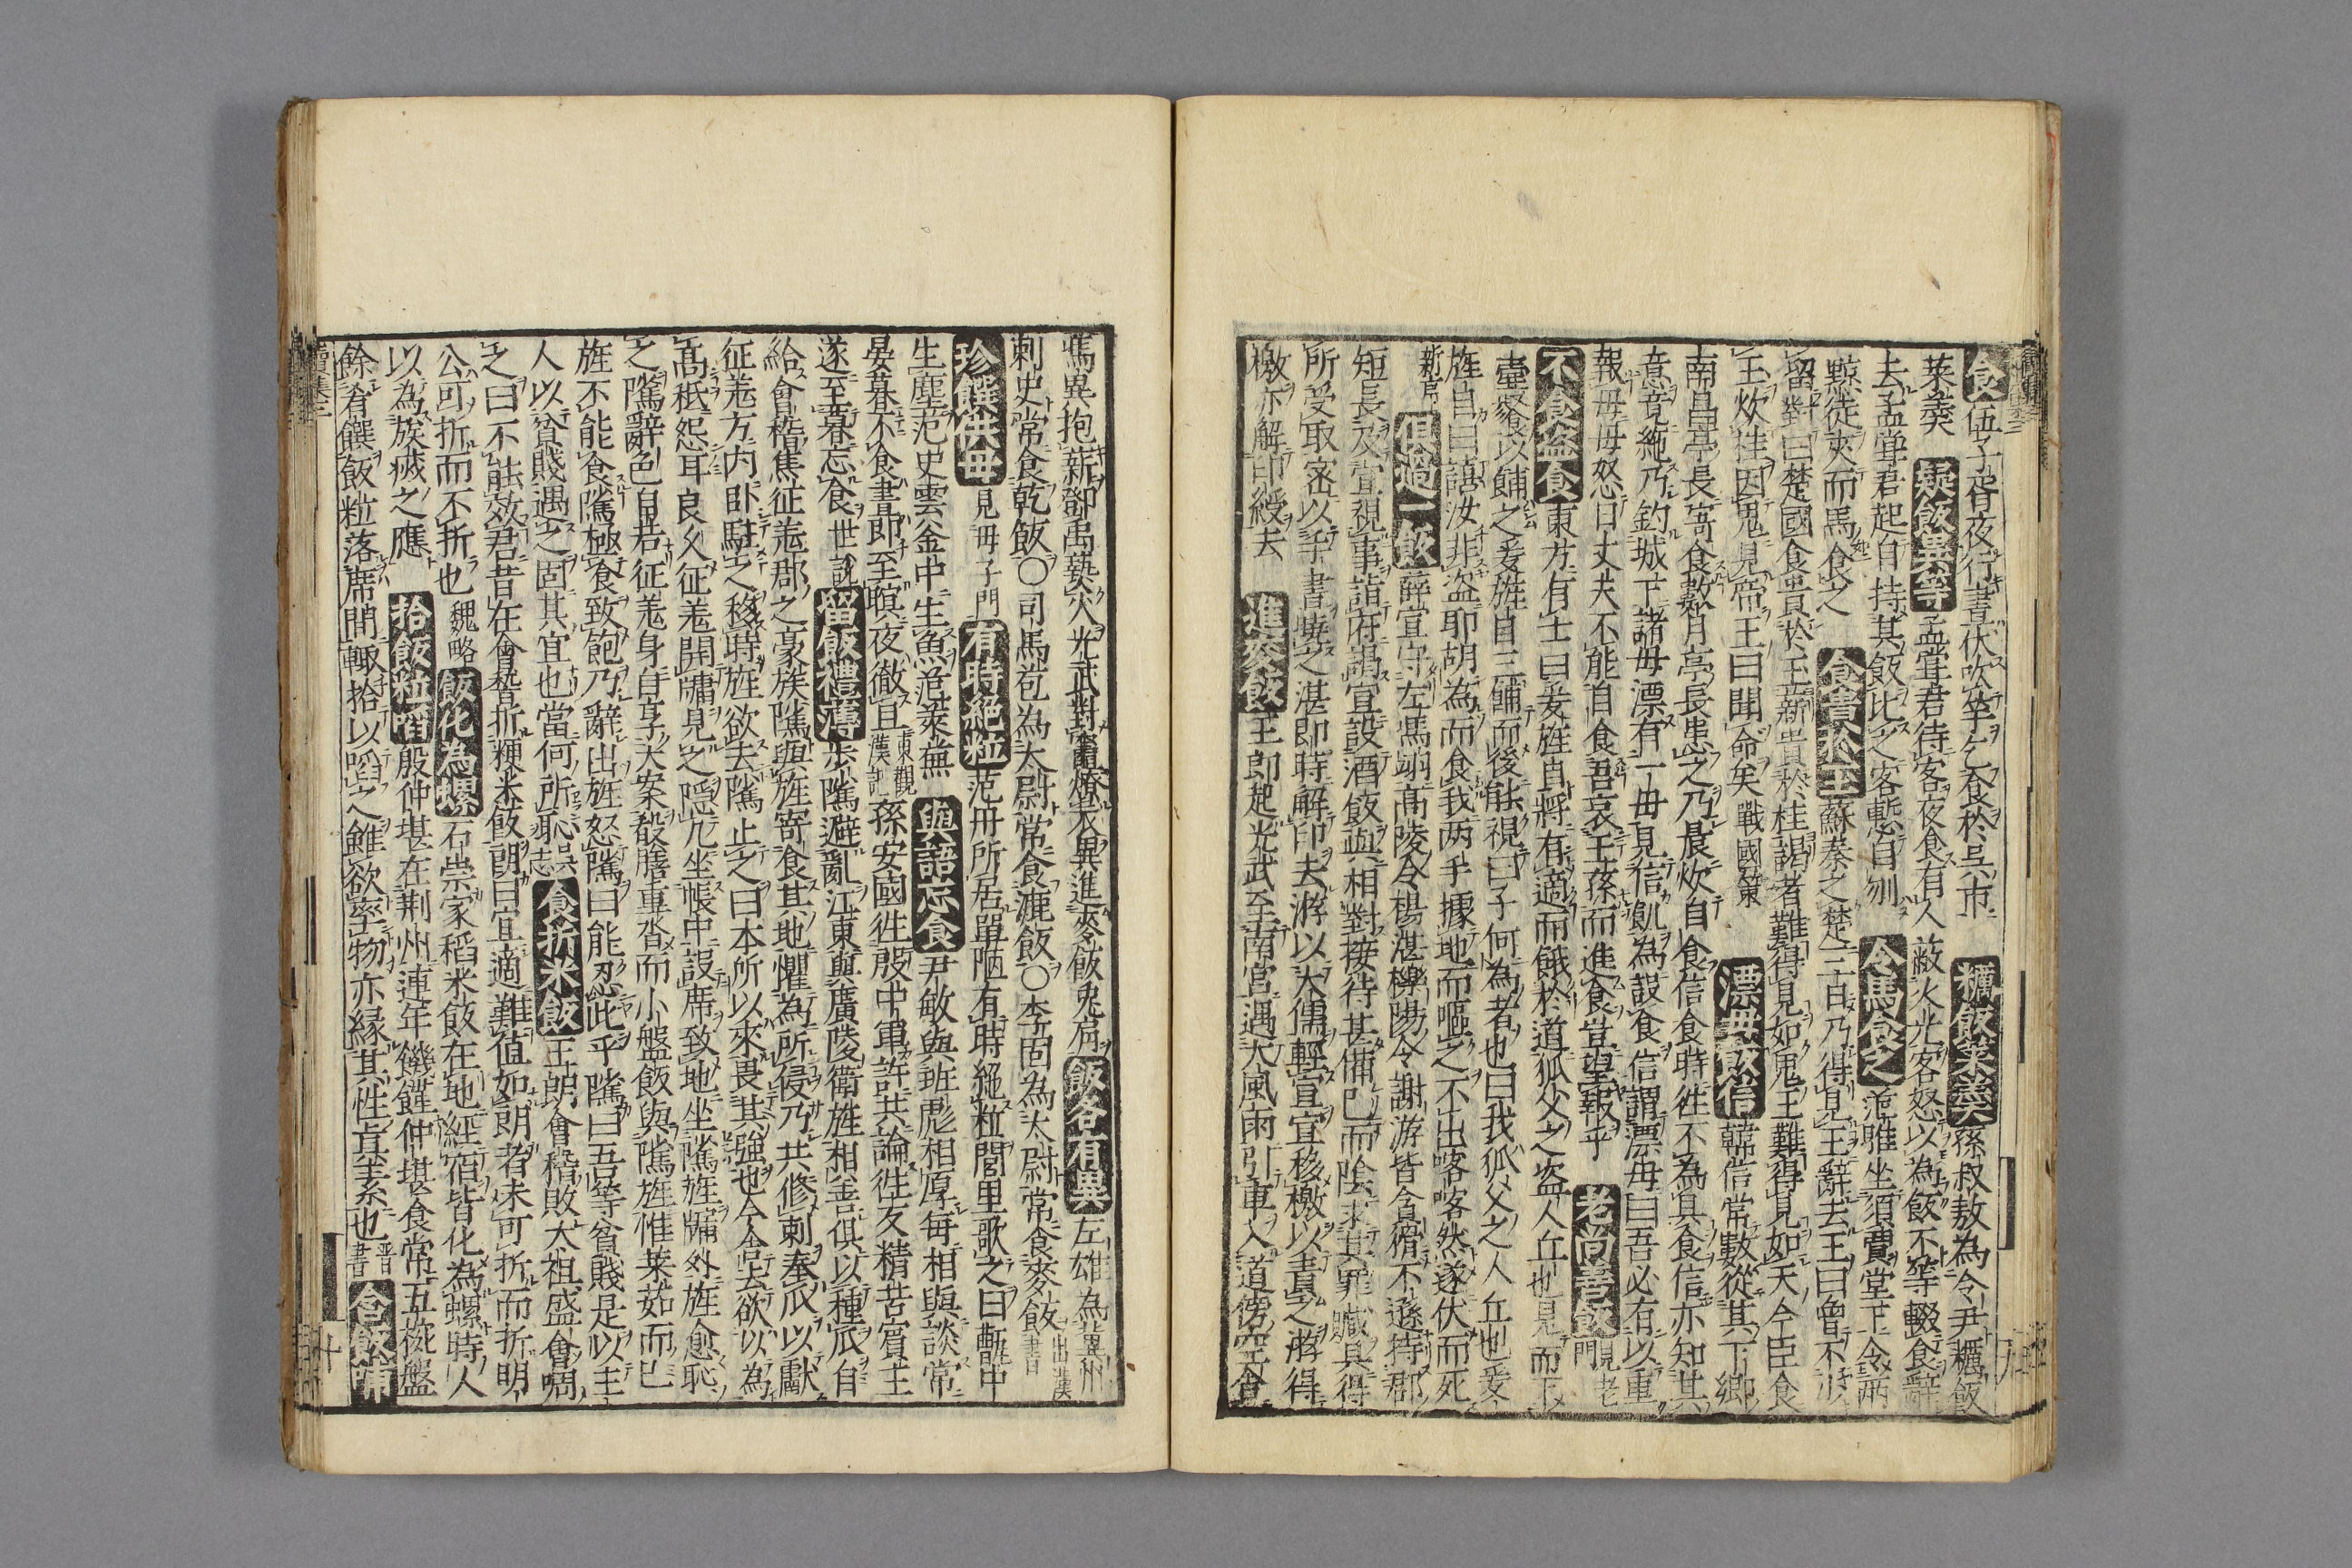 食伍子胥夜行晝伏吹竽乞食於吳市 糲飯菜羹孫叔敖為令尹糲飯
菜羹 疑飯異等孟甞君待客夜食有人蔽火光客怒以為飯不等輟食辭
去孟甞君起自持其飯比之客慙自刎 令馬食之范雎坐須賈堂下令兩
黥徒夾而馬食之 食貴於玉蘇秦之楚三日乃得見王辭去王曰曾不少
留對曰楚國食貴於玉薪貴於桂謁者難得見如鬼王難得見如天今臣食
玉炊桂因鬼見帝王曰聞命矣戰國策 漂母飯信韓信常數從其下鄉
南昌亭長寄食數月亭長患之乃晨炊自食信食時徃不為具食信亦知其
意竟絶乃釣城下諸母漂有一母見信飢為設食信謂漂母曰吾必有以重
報母母怒曰丈夫不能自食吾哀王孫而進食豈望報乎 老尚善飯見老門
不食盗食東方有士曰爰旌自將有適而餓於道狐父之盗人丘也見而下
壷飱以餔之爰旌自三餔而後能視曰子何為者也曰我狐父之人丘也爰
旌自曰譆汝非盗耶胡為而食我两手據地而嘔之不出喀喀然遂伏而死
新序 俱過一飯薛宣守左馮翊高陵令楊湛櫟陽令謝游皆貪猾不遜持郡
短長及宣視事詣府謁宣設酒飯與相對接待甚備已而陰求其罪贓具得
所受取宻以手書曉之湛即時解印去游以大儒輕宣宣移檄以責之游得
檄亦解印綬去 進麥飯王郎起光武至南宮遇大風雨引車入道傍空舎
馮異抱薪鄧禹爇火光武對竈燎衣異進麥飯兎肩 飯各有異左雄為冀州
刺史常食乾飯○司馬苞為太尉常食漉飯○李固為太尉常食麥飯出漢書
珍饌供毋見毋子門 有時絶粒范丹所居單陋有時絶粒閭里歌之曰甑中
生塵范史雲釜中生魚范萊蕪 與語忘食尹敏與班彪相厚每相與談常
晏暮不食晝即至暝夜徹旦東觀漢記孫安國徃殷中軍許共論徃友精苦賓主
遂至暮忘食世說 留飯禮薄步隲避亂江東與廣陵衛旌相善俱以種瓜自
給會稽焦征羌郡之豪族隲與旌寄食其地懼為所侵乃共修刺奉瓜以獻
征羌方内卧駐之移時旌欲去隲止之曰本所以來畏其強也今舎去欲以為
髙秪怨耳良久征羌開牗見之隱几坐帳中設席致地坐隲旌牗外旌愈恥
之隲辭色自若征羌身自享大案殽膳重沓而小盤飯與隲旌惟菜茹而巳
旌不能食隲極食致飽乃辭出旌怒隲曰能忍此乎隲曰吾等貧賤是以主
人以貧賤遇之固其宜也當何所恥志 食折米飯王朗會稽敗太祖盛會啁
之曰不能效君昔在會稽折粳米飯朗曰宜適難值如朗者未可折而折明
公可折而不折也魏略 飯化為螺石崇家稻米飯在地經宿皆化為螺時人
以為族㓕之應 拾飯粒㗖殷仲堪在荆州連年饑饉仲堪食常五椀盤
餘肴饌飯粒落席間輙拾以㗖之雖欲率物亦緣其性真素也晋書 含飯哺